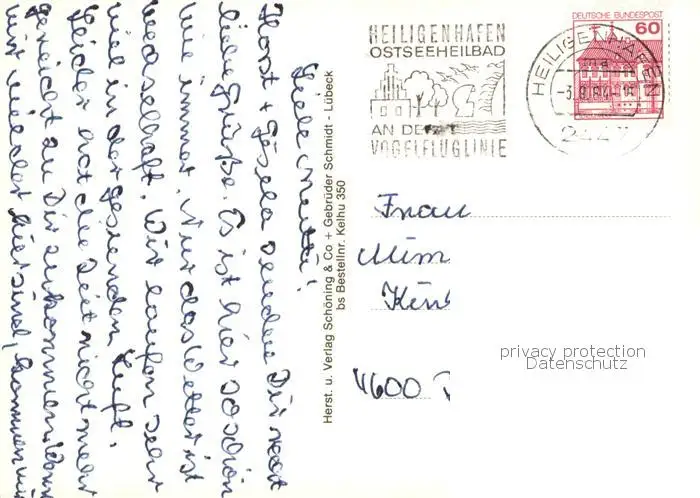 Liebe Mutti!
Horst + Gisela senden Dir recht
liebe Grüße. Es ist hier so schön
wie immer. Nur das Wetter ist
wechselhaft. Wir laufen sehr
viel in der gesunden Luft.
Leider hat die Zeit nicht mehr
gereicht zu Dir zu kommen. Wenn
wir wieder hier sind, kommen wir
Herst. u. Verlag Schöning & Co + Gebrüder Schmidt - Lübeck
bs Bestellnr. Kelhu 350
HEILIGENHAFEN
OSTSEEHEILBAD
AN DER
VOGELFLUGLINIE
HEILIGENHAFEN
-3.9.84
2447
DEUTSCHE BUNDESPOST
60
Frau
4600
privacy protection
Datenschutz